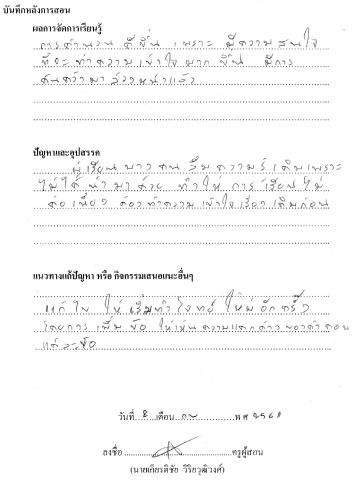 บันทึกหลังการสอน
ผลการจัดการเรียนรู้
การคำนวณ ดีขึ้น เพราะ มีความสนใจ
ที่จะทำความเข้าใจ มาก ขึ้น มีการ
ค้นคว้ามาล่วงหน้าแล้ว
ปัญหาและอุปสรรค
ผู้เรียน บางคน ลืมความรู้เดิมเพราะ
ไม่ได้นำมาด้วย ทำให้ การเรียนไม่
ต่อเนื่อง ต้องทำความเข้าใจเรื่องเดิมก่อน
แนวทางแก้ปัญหา หรือ กิจกรรมเสนอแนะอื่นๆ
แก้ไข ให้เริ่มทำโจทย์ ใหม่อีกครั้ง
โดยการ เพิ่มข้อ ให้เห็นความแตกต่างของคำตอบ
แต่ละข้อ
วันที่ 8 เดือน กพ พ.ศ 2561
ลงชื่อ ครูผู้สอน
(นายเกียรติชัย วิริยวุฒิวงศ์)